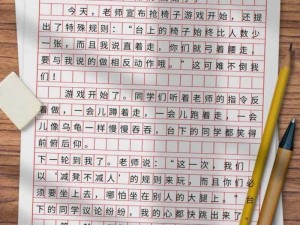 今天，老师宣布抢椅子游戏开始，还提
出了特殊规则：“台上的椅子始终比人数少
一张，而且我说直着走，你们就弓着腰走，要
与我说的做相反动作哦。”这可难不倒我
们！
游戏开始了。同学们听着老师的指令反
着做，一会儿蹲着走，一会儿跑着走，一会
儿像乌龟一样慢慢吞吞，台下的同学都笑得
前俯后仰。
下一轮到我了。老师说：“这一次，我们
以‘减凳不减人’的规则来玩，而且你们必
须要坐上去，哪怕坐在别人的大腿上，”台
下的同学议论纷纷，我的心都快跳出来了